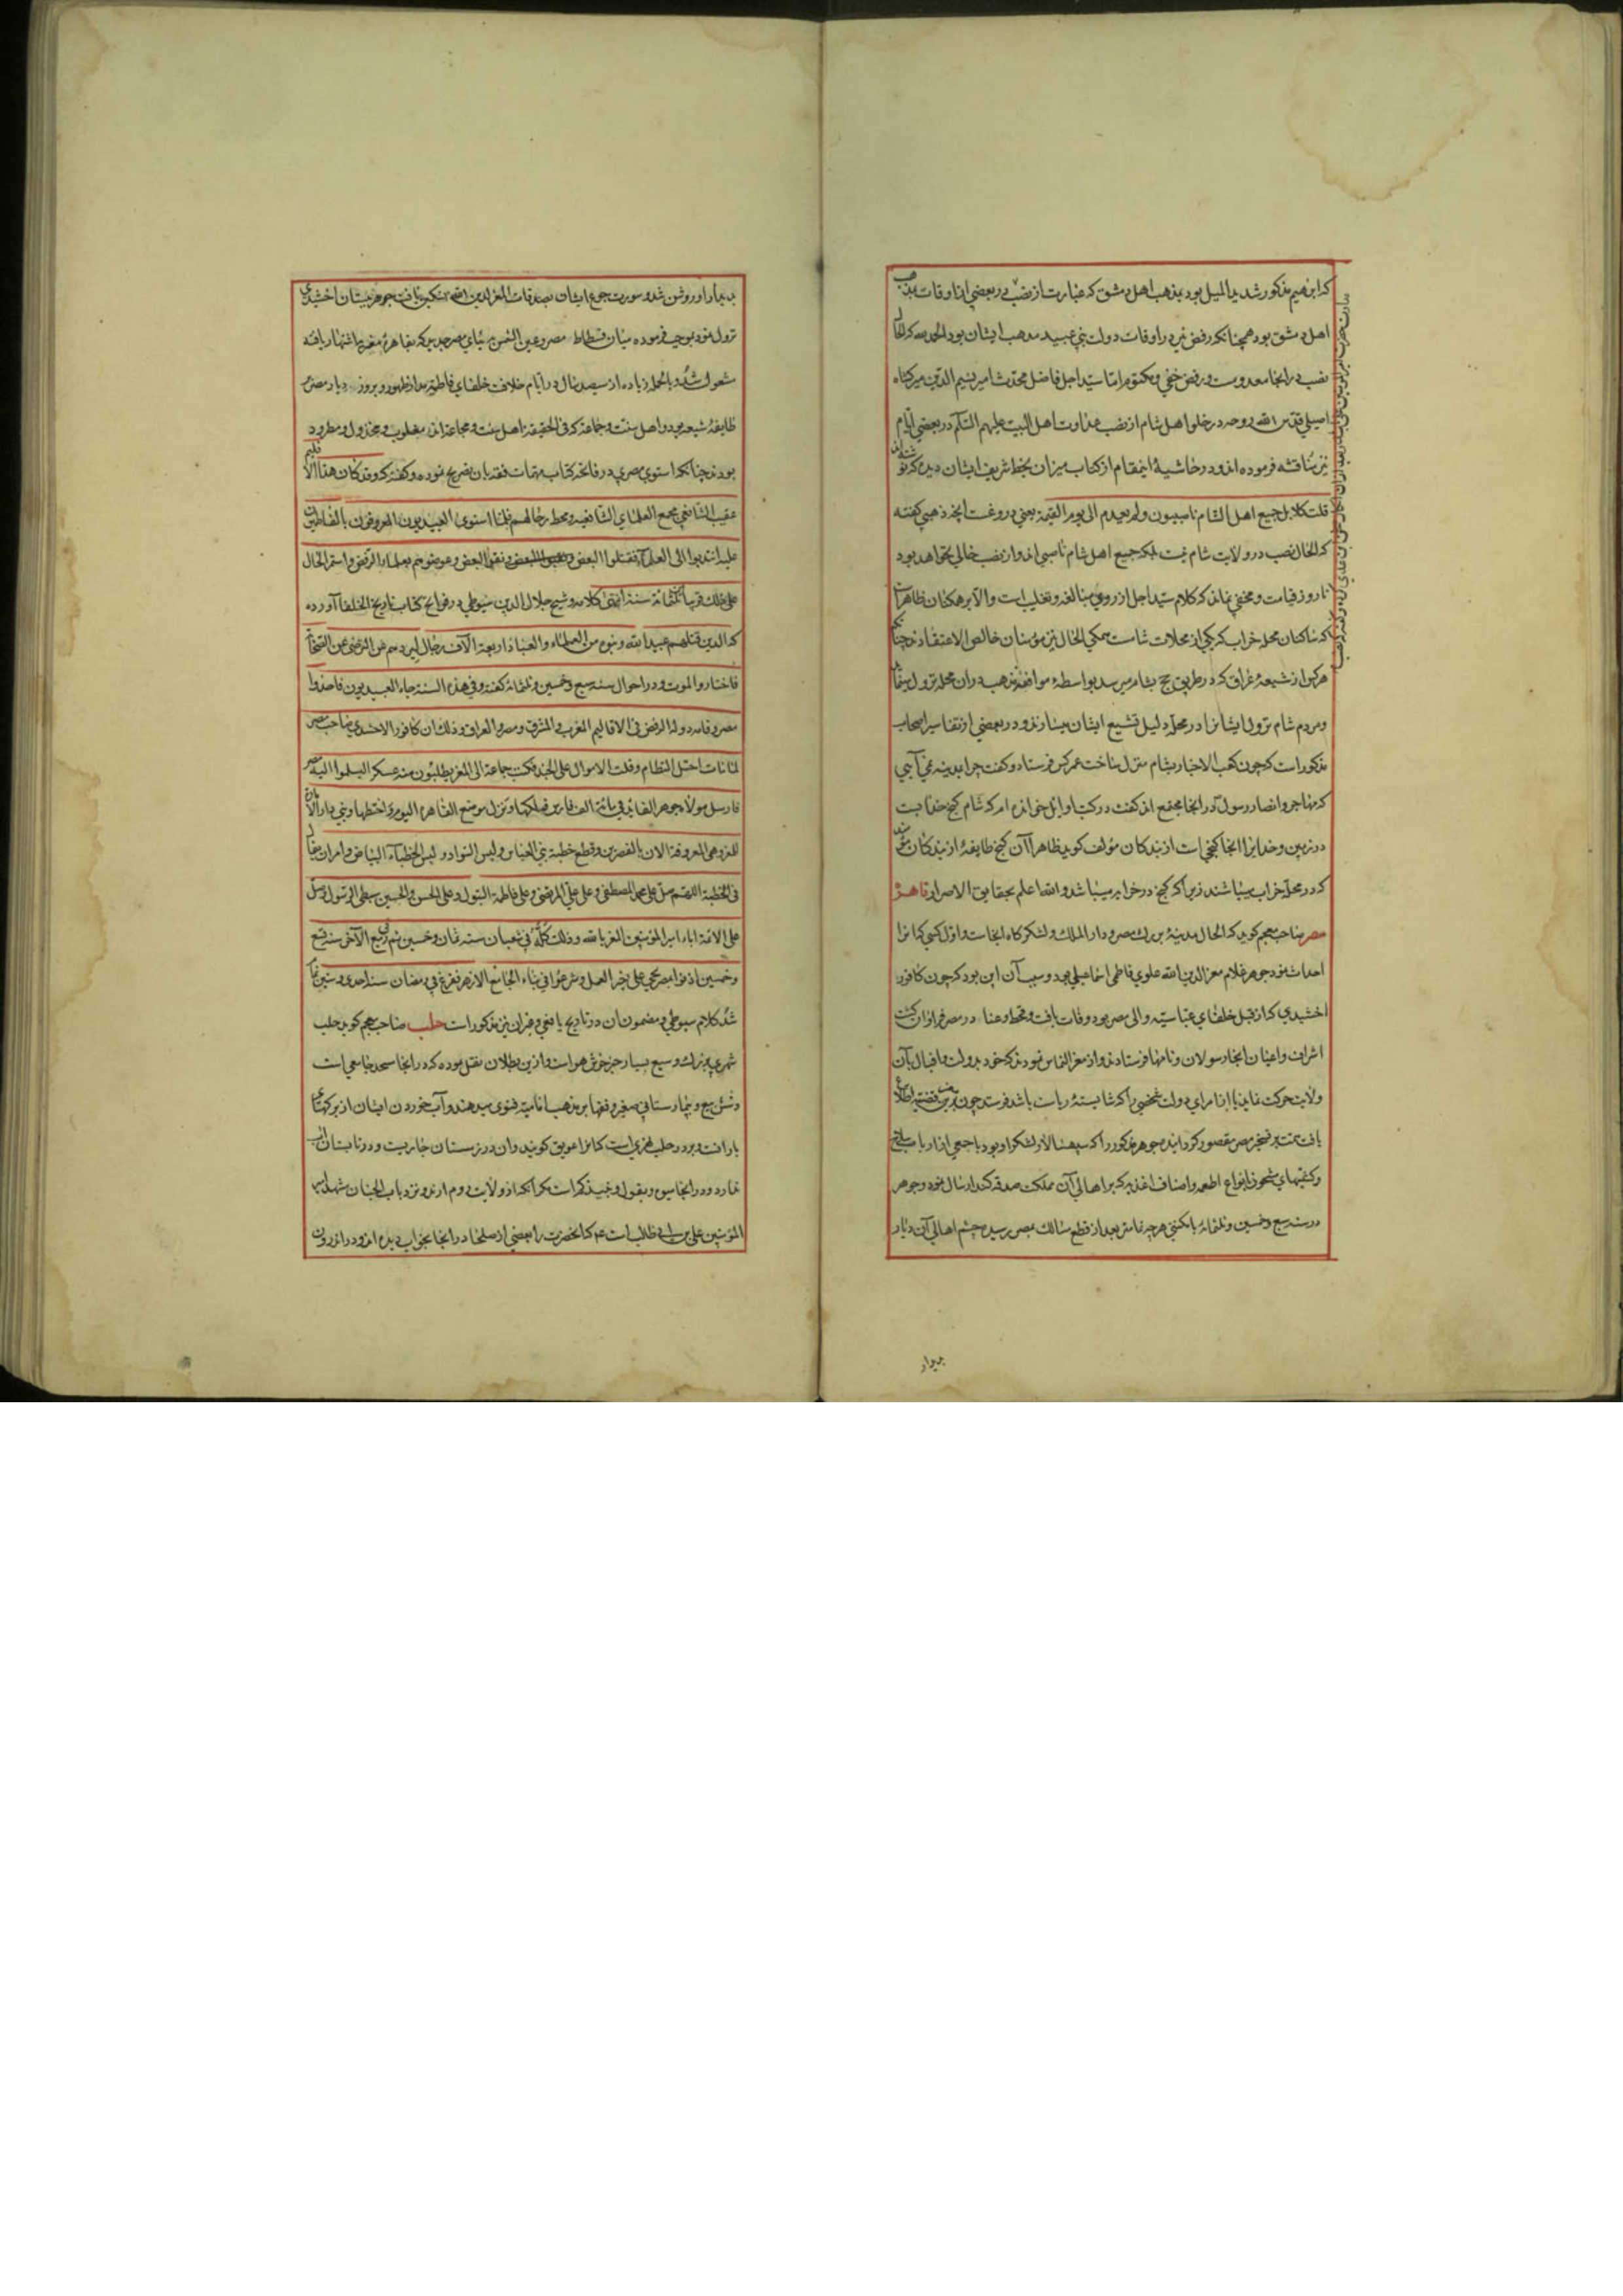 که ابراهیم مذکور شدید المیل بود بمذهب اهل دمشق که عبارتست از نصب در بعضی از اوقات
اهل دمشق بود همچنانکه رفض نیز در اوقات دولت بنی عبید مذهب ایشان بود الحمد لله که الحال
نصب در آنجا معدومست و رفض خفی و مکتوم اما سید اجل فاضل محدث امیر نسیم الدین میرکشاه
اصیلی قدس الله روحه در خلو اهل شام از نصب عداوت اهل البیت علیهم السلام در بعضی ایام
نیز مناقشه فرموده اند و در حاشیهٔ اینمقام از کتاب میزان بخط شریف ایشان دیدم که نوشته
قلت کلا بل جمیع اهل الشام ناصبیون ولم یعدم الی یوم القیمة یعنی دروغست آنچه ذهبی گفته
که الحال نصب در ولایت شام نیست بلکه جمیع اهل شام ناصبی اند و از نصب خالی نخواهد بود
تا روز قیامت و مخفی نماند که کلام سید اجل از روی مبالغه و تغلیب است والا بر همکنان ظاهر است
که ساکنان محله خراب که یکی از محلات شامست همگی الحال نیز مؤمنان خالص الاعتقادند چنانکه
هرکس از شیعهٔ عراق که در طریق حج بشام میرسد بواسطهٔ موافقت مذهب در آن محله نزول مینماید
و مردم شام نزول ایشانرا در محله دلیل تشیع ایشان میسازند و در بعضی از تفاسیر اصحاب
مذکور است که چون کعب الاحبار بشام منزل ساخت عمر کس فرستاد و گفت چرا بمدینه نمی آیی
که مهاجر و انصار رسول در آنجا مجتمع اند گفت در کتب اوایل خوانده ام که شام گنج خداست
در زمین و خدایرا آنجا گنجی است از بندگان مؤلف گوید ظاهرا آن گنج طایفهٔ از بندگان مؤمنند
که در محله خراب میباشند زیرا که گنج در خرابه میباشد والله اعلم بحقایق الاسرار قاهرهٔ
مصر صاحب معجم گوید که الحال مدینهٔ بزرگ مصر و دار الملک و لشکرگاه آنجاست و اول کسی که آنرا
احداث نمود جوهر غلام معز الدین الله علوی فاطمی اسماعیلی بود و سبب آن این بود که چون کافور
اخشیدی که از قبل خلفای عباسیه والی مصر بود وفات یافت و قحط و عنا در مصر فراوان گشت
اشراف و اعیان آنجا رسولان و نامها فرستادند و از معز التماس نمودند که خود بدولت و اقبال بآن
ولایت حرکت نماید یا از امرای دولت شخصی را که شایستهٔ ریاست باشد فرستد چون معز برین قضیه اطلاع
یافت همت بر تسخیر مصر مقصور گردانیده جوهر مذکور را که سپهسالار لشکر او بود با جمعی از ارباب سلاح
و کشتیهای مشحون بانواع اطعمه و اصناف اغذیه که بر اهالی آن مملکت صدقه کند ارسال نمود و جوهر
در سنه سبع و خمسین و ثلثمائه با مکنتی هرچه تمامتر بعد از قطع مسالک بمصر رسید و چشم اهالی آن دیار
بدیدار
بدیدار او روشن شد و سورت جوع ایشان بصدقات المعز لدین الله تسکین یافت جوهر بستان اخشیدی
نزول نمود بموجب فرموده میان فسطاط مصر و عین الشمس بنای مصر جدید که بقاهرهٔ معزیه اشتهار یافته
مشعول شد و بالجمله زیاده از سیصد سال در ایام خلافت خلفای فاطمیه مدار ظهور و بروز در دیار مصر
طایفهٔ شیعه بود و اهل سنت و جماعة که فی الحقیقه اهل سنت و مجاعه اند مغلوب و مخذول و مطرود
بودند چنانکه اسنوی مصری در فاتحه کتاب مهمات فقه بان تصریح نموده و گفته که وقد کان هذا الاقلیم
عقیب الشافعی مجمع العلمای الشافعیة ومحط رحالهم فلما استوی العبیدیون المعروفون بالفاطمیین
علیه انتدبوا الی العلما فقتلوا البعض ونفوا البعض وعوضوهم بعلما الرفض واستمر الحال
علی ذلک قریبا ثلثمائة سنة انتهی کلامه و شیخ جلال الدین سیوطی در فواتح کتاب تاریخ الخلفا آورده
که الذین قتلهم عبید الله وبنوه من العلماء والعباد اربعة آلاف رجال لیردهم عن الترضی عن الصحابة
فاختاروا الموت و در احوال سنه سبع و خمسین و ثلثمائه گفته وفی هذه السنة جاء العبیدیون فاخذوا
مصر وقامت دولة الرفض فی الاقالیم المغرب والمشرق ومصر والعراق وذلک ان کافور الاخشیدی صاحب مصر
لما مات اختل النظام وقلت الاموال علی الجند فکتب جماعة الی المعز یطلبون منه عسکر الیسلموا الیه مصر
فارسل مولاه جوهر القائد فی مائة الف فارس فملکها ونزل موضع القاهرة الیوم واختطها وبنی دار الامارة
للمعز وهی المعروفة الآن بالقصرین وقطع خطبة بنی العباس ولبس السواد ولبس الخطباء البیاض وامر ان یقال
فی الخطبة اللهم صل علی محمد المصطفی وعلی علی المرتضی وعلی فاطمة البتول وعلی الحسن والحسین سبطی الرسول وصل
علی الائمة اباء امیر المؤمنین المعز بالله وذلک کله فی شعبان سنه ثمان وخمسین ثم فی ربیع الآخر سنه تسع
وخمسین اذنوا بمصر بحی علی خیر العمل وشرعوا فی بناء الجامع الازهر ففرغ فی رمضان سنه احدی وستین تمام
شد کلام سیوطی و مضمون آن در تاریخ یافعی و غیر آن نیز مذکور است حلب صاحب معجم گوید حلب
شهری بزرگ وسیع بسیار خیر خوش هواست و از بن بطلان نقل نموده که در آنجا مسجد جامعی است
و شش بیع و بیمارستانی صغیر و فقها بر مذهب امامیه فتوی میدهند و آب خوردن ایشان از برکهای
بارانست و بر در حلب نهریست که آنرا عویق گویند و آن در زمستان جاریست و در تابستان آب
ندارد و در آنجا میوه و بقول و نبیذ کم است مگر آنکه از ولایت روم آرند و نزد باب الجنان مشهد امیر
المؤمنین علی بن ابی طالب است عم که آنحضرت را بعضی از صلحا در آنجا بخواب دیده اند و در اندرون